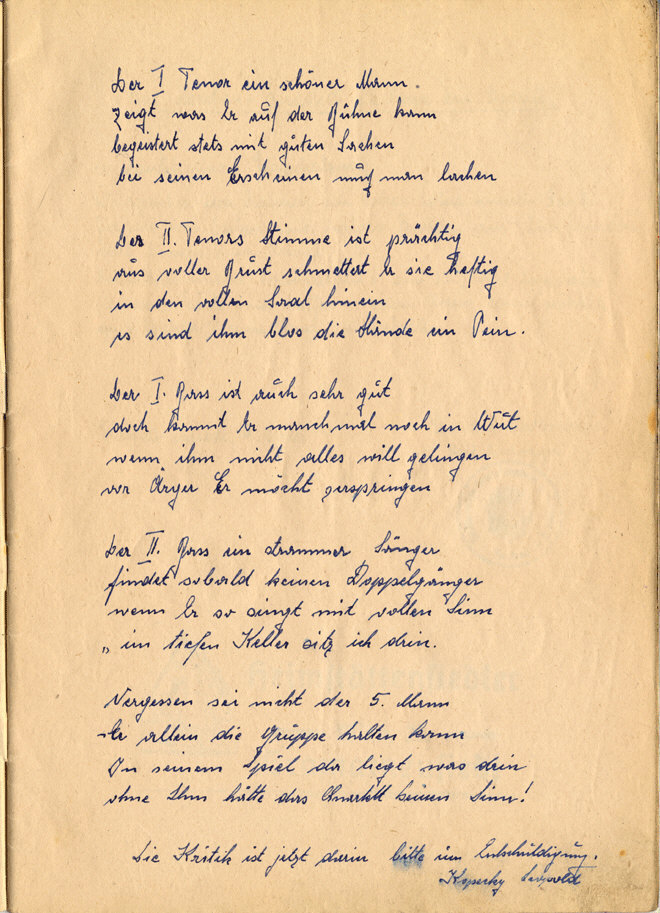 Der I Tenor ein schöner Mann.
Zeigt was Er auf der Bühne kann
begeistert stets mit guten Sachen
bei seinen Erscheinen muß man lachen
Der II. Tenors Stimme ist prächtig
aus voller Brust schmettert Er sie heftig
in den vollen Saal hinein
es sind ihm blos die Wände ein Pein.
Der I. Bass ist auch sehr gut
doch kommt Er manchmal noch in Wut
wenn ihm nicht alles will gelingen
vor Ärger Er möcht zerspringen
Der II. Bass ein strammer Sänger
findet sobald keinen Doppelgänger
wenn Er so singt mit vollen Sinn
„ im tiefen Keller sitz ich drin.
Vergessen sei nicht der 5. Mann
Er allein die Gruppe halten kann
In seinem Spiel da liegt was drin
ohne Ihm hätte das Quartett keinen Sinn!
Die Kritik ist jetzt darin bitte um Entschuldigung.
Kopecky Leopold